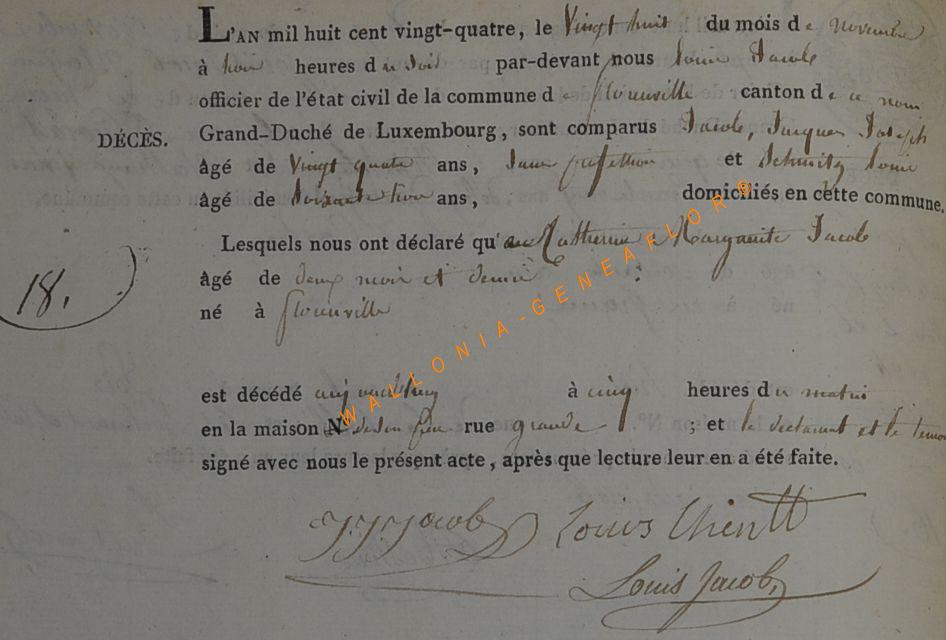 L'AN mil huit cent vingt-quatre, le Vingt huit du mois de novembre
à trois heures du soir par-devant nous Louis Jacob
officier de l'état civil de la commune de florenville canton de ce nom
DÉCÈS. Grand-Duché de Luxembourg, sont comparus Jacob, Jacques Joseph
âgé de Vingt quatre ans, Sans profession et Schmitz Louis
âgé de Soixante trois ans, domiciliés en cette commune.
Lesquels nous ont déclaré qu'une Catherine Marguerite Jacob
âgé de deux mois et demie
18.
né à florenville
est décédé aujourd'huy à cinq heures du matin
en la maison N. de son père rue grande ; et le declarant et le temoin
signé avec nous le présent acte, après que lecture leur en a été faite.
JJJacob Louis
Louis Jacob,
WALLONIA-GENEAFLOR®